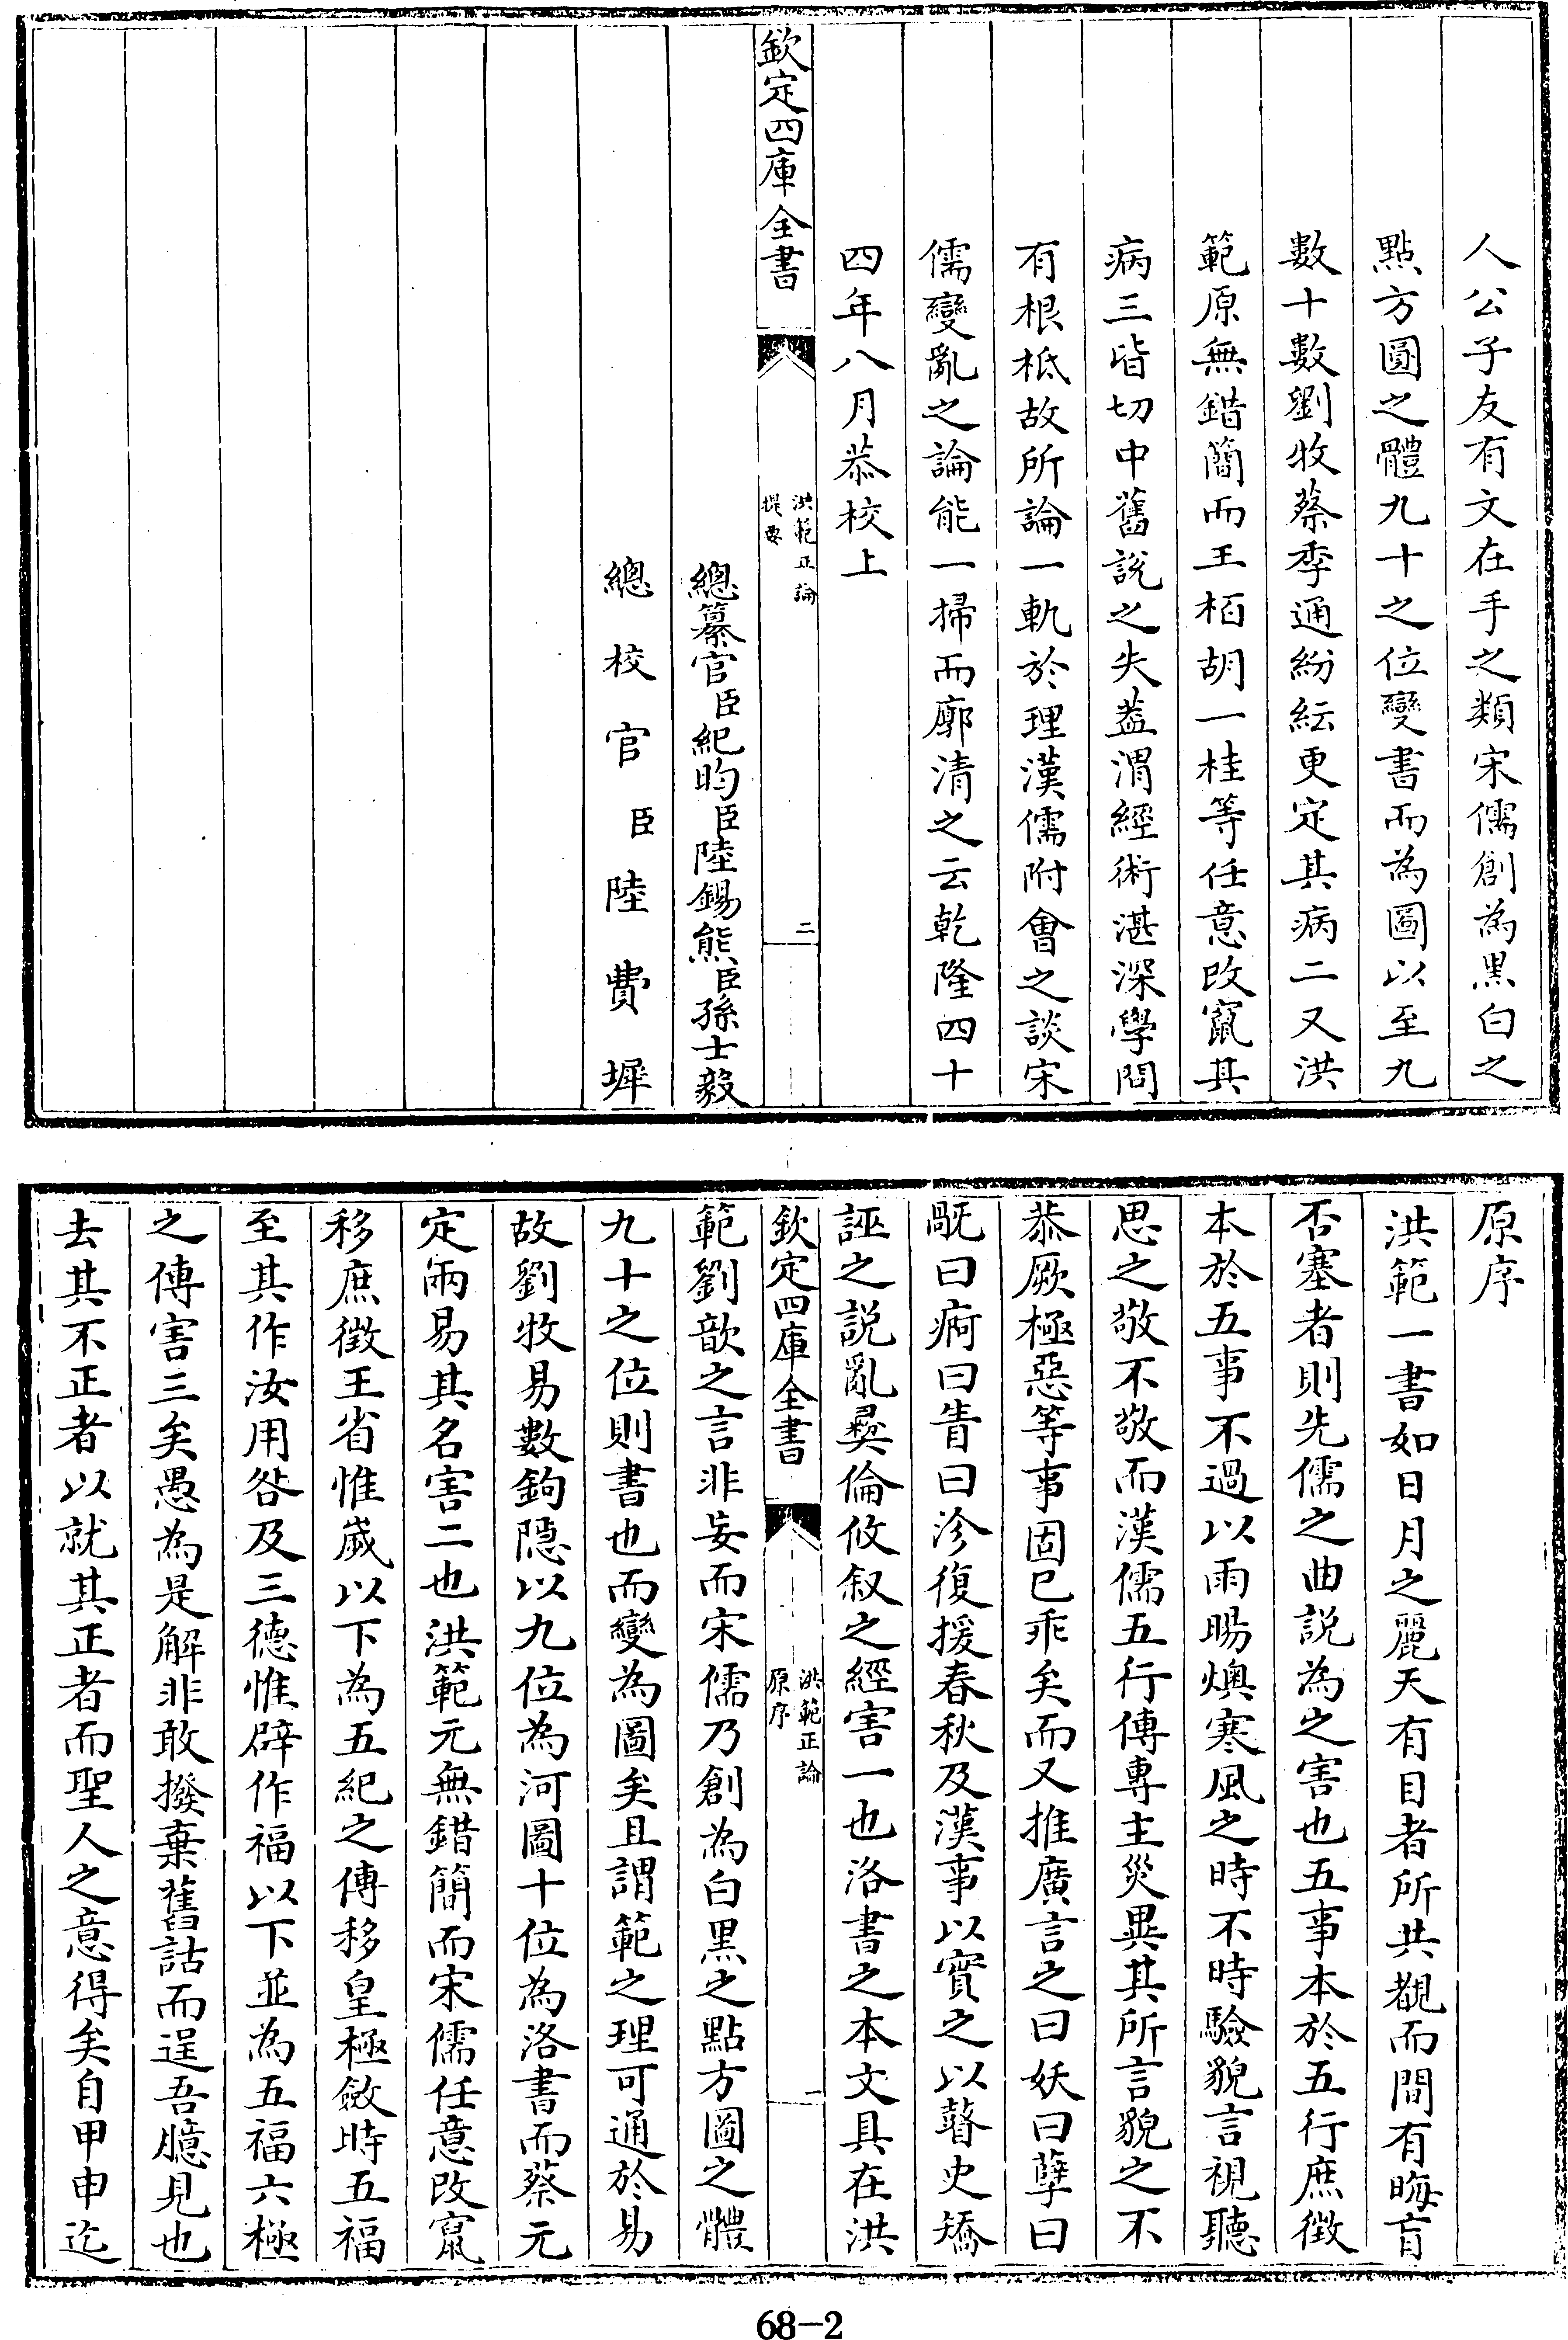 人公子友有文在手之類宋儒創為黑白之
點方圓之體九十之位變書而為圖以至九
數十數劉牧蔡季通紛紜更定其病二又洪
範原無錯簡而王栢胡一桂等任意改竄其
病三皆切中舊說之失葢渭經術湛深學問
有根柢故所論一軌於理漢儒附會之談宋
儒變亂之論能一掃而廓清之云乾隆四十
四年八月恭校上
欽定四庫全書
洪範正論
提要
二
總纂官臣紀昀臣陸錫熊臣孫士毅
總校官臣陸費墀
原序
洪範一書如日月之麗天有目者所共覩而間有晦盲
否塞者則先儒之曲説為之害也五事本於五行庶徵
本於五事不過以雨暘燠寒風之時不時驗貌言視聽
思之敬不敬而漢儒五行傳專主災異其所言貌之不
恭厥極惡等事固已乖矣而又推廣言之曰妖曰孽曰
旤曰痾曰眚曰沴復援春秋及漢事以實之以瞽史矯
誣之説亂彛倫攸叙之經害一也洛書之本文具在洪
欽定四庫全書
洪範正論
原序
一
範劉歆之言非妄而宋儒乃創為白黒之點方圓之體
九十之位則書也而變為圖矣且謂範之理可通於易
故劉牧易數鉤隠以九位為河圖十位為洛書而蔡元
定兩易其名害二也洪範元無錯簡而宋儒任意改竄
移庶徵王省惟歲以下為五紀之傳移皇極斂時五福
至其作汝用咎及三德惟辟作福以下並為五福六極
之傳害三矣愚為是解非敢撥棄舊詁而逞吾臆見也
去其不正者以就其正者而聖人之意得矣自甲申迄
68-2